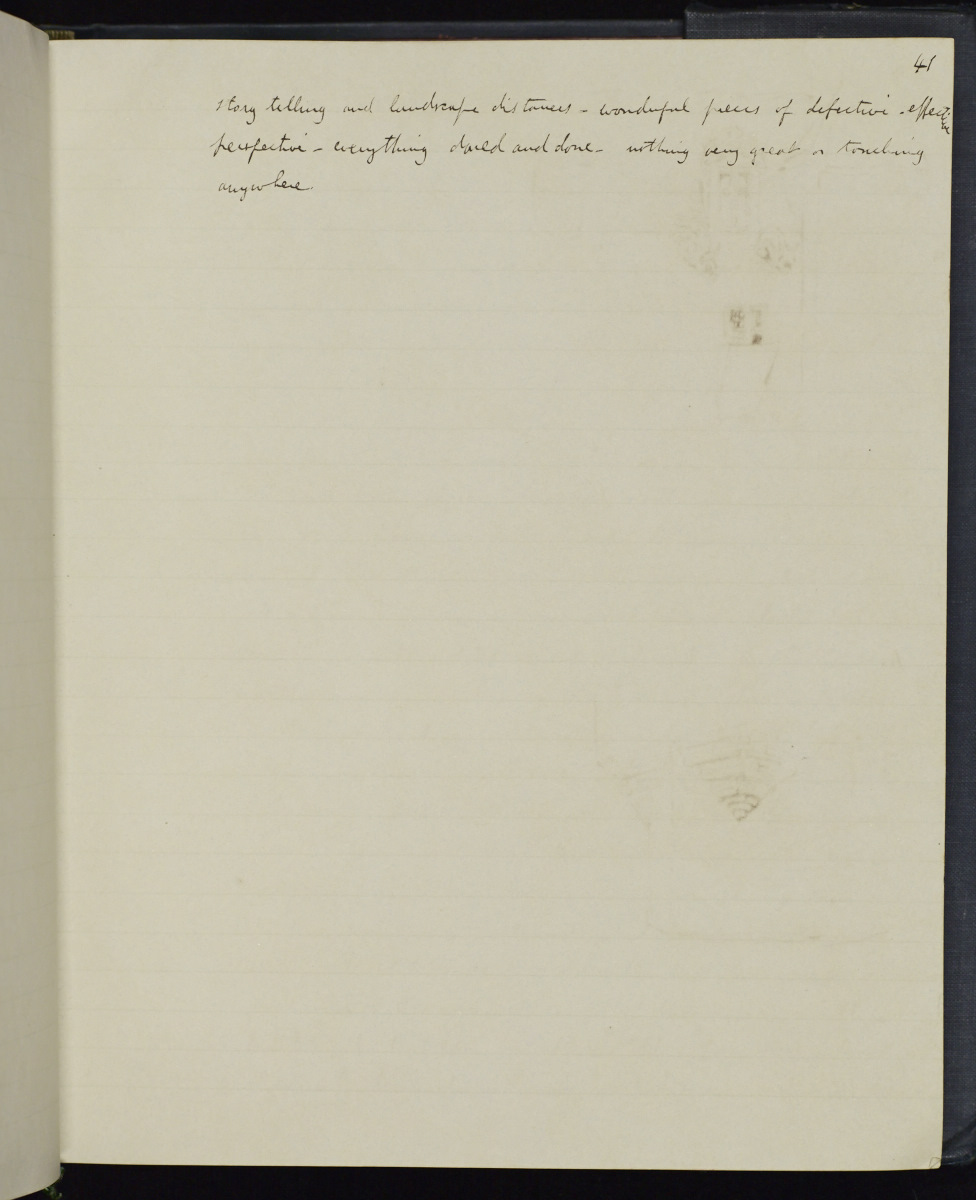 41
story telling and landscape distances - wonderful pieces of defective - effective
perspective - everything dared and done - nothing very great or touching
anywhere.